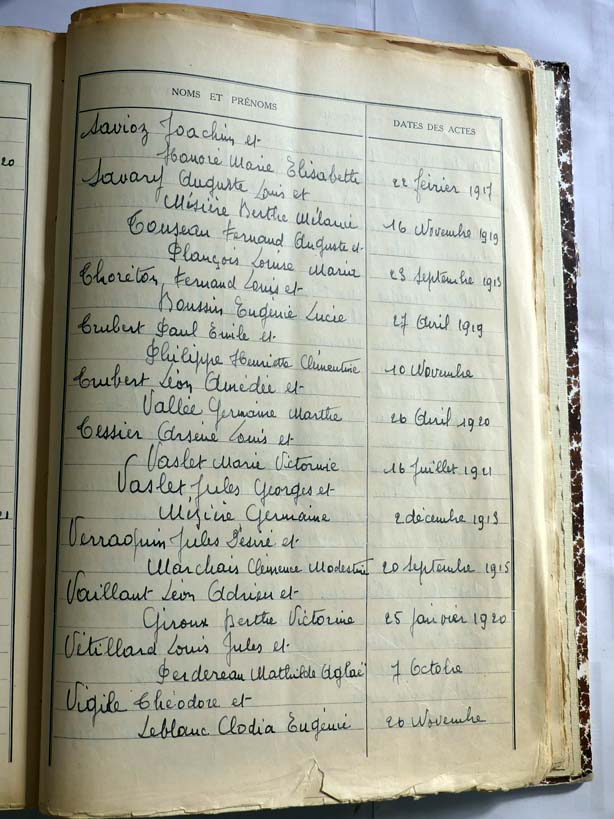 20
21
NOMS ET PRÉNOMS
DATES DES ACTES
Savioz Joachim et
Honoré Marie Elisabette 22 février 1917
Savary Auguste Louis et
Mésière Berthe Mélanie 16 Novembre 1919
Touseau Fernand Auguste et
Plançois Louise Maria 23 Septembre 1913
Thoréton, Fernand Louis et
Boussin Eugénie Lucie 27 Avril 1919
Trubert Paul Emile et
Philippe Henriette Clémentine 10 Novembre
Trubert Léon Amédée et
Vallée Germaine Marthe 20 Avril 1920
Tessier Arsène Louis et
Vaslet Marie Victorine 16 Juillet 1921
Vaslet Jules Georges et
Mézière Germaine 2 décembre 1913
Verraquin Jules Désiré et
Marchais Clémence Modestine 20 Septembre 1915
Vaillant Léon Adrien et
Giroux Berthe Victorine 25 Janvier 1920
Vétillard Louis Jules et
Perdereau Mathilde Aglaé 7 Octobre
Vigile Théodore et
Leblanc Clodia Eugénie 20 Novembre